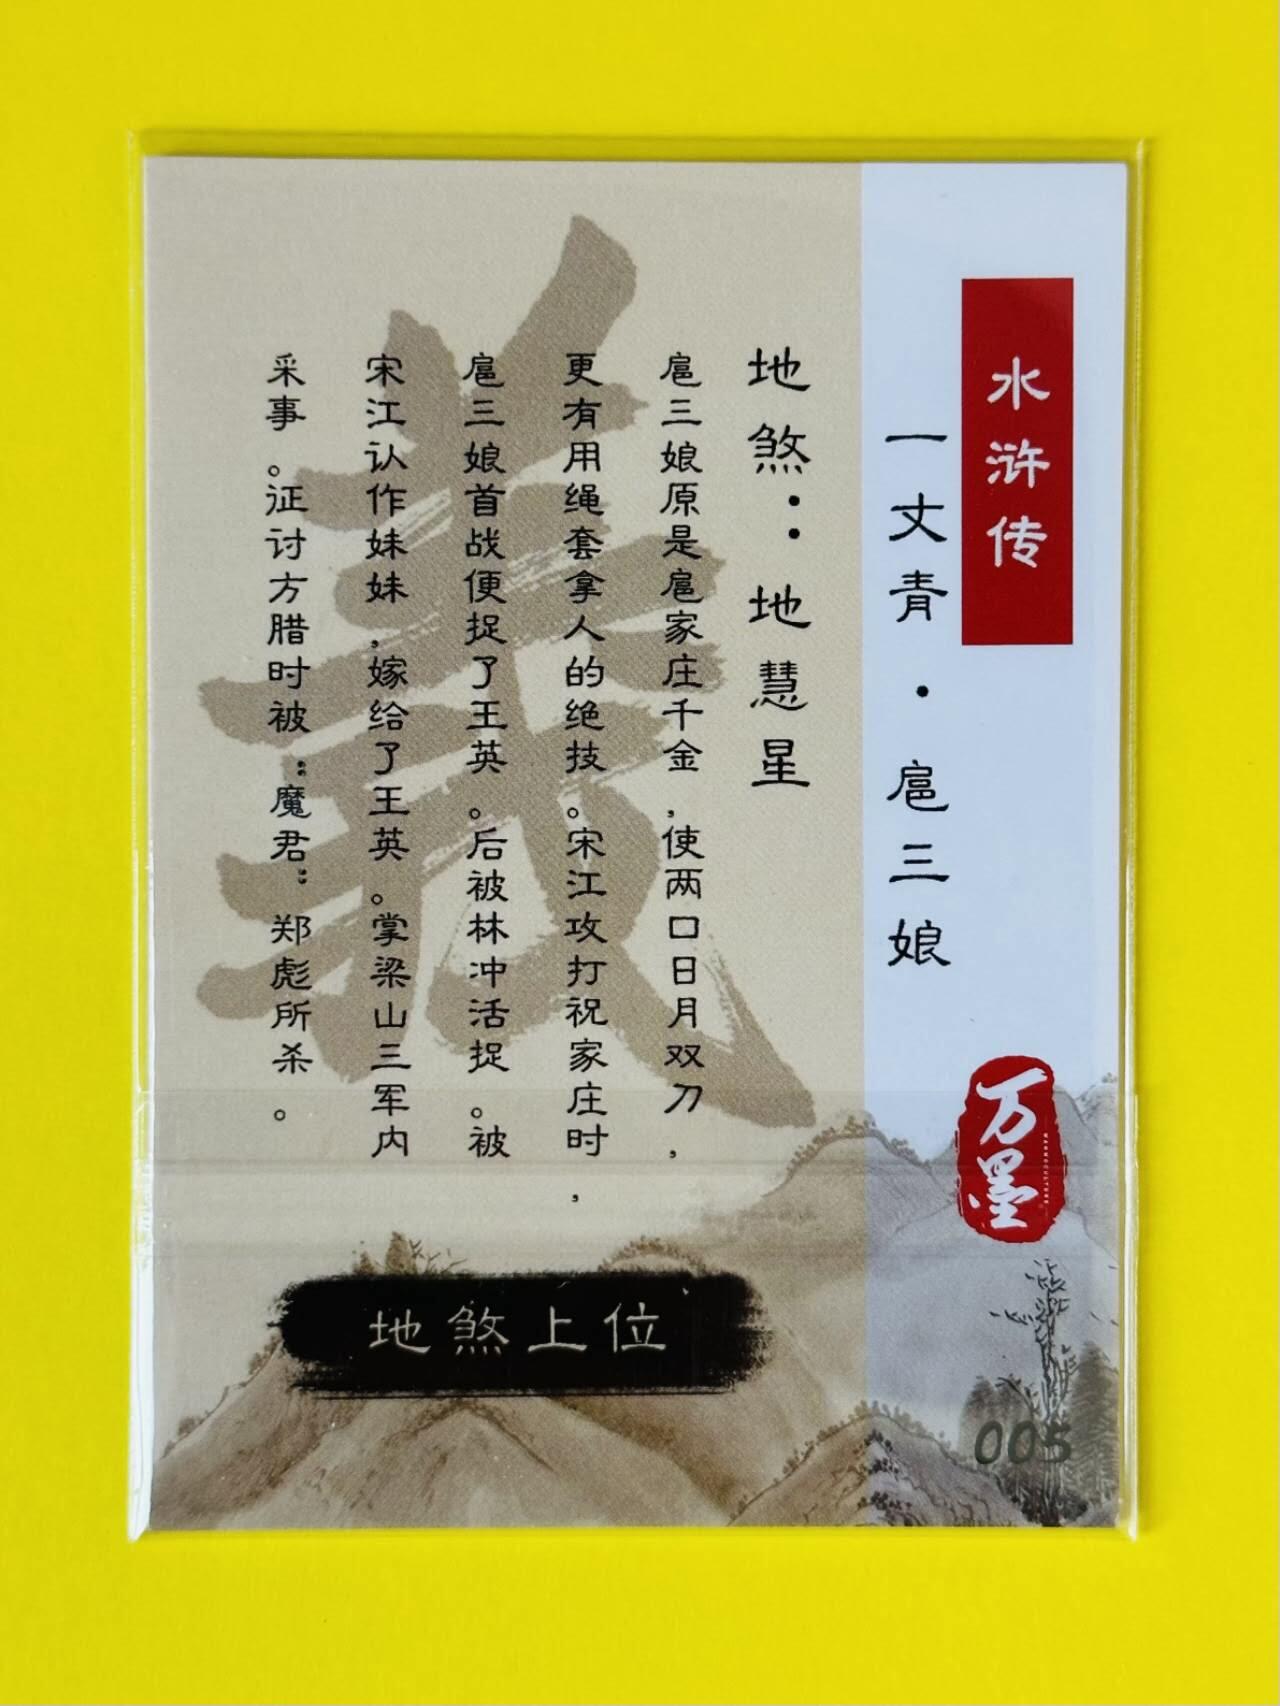 水浒传
一丈青·扈三娘
地煞：地慧星
扈三娘原是扈家庄千金，使两口日月双刀，
更有用绳套拿人的绝技。宋江攻打祝家庄时，
扈三娘首战便捉了王英。后被林冲活捉。被
宋江认作妹妹，嫁给了王英。掌梁山三军内
采事。征讨方腊时被“魔君”郑彪所杀。
義
地煞上位
万墨
005